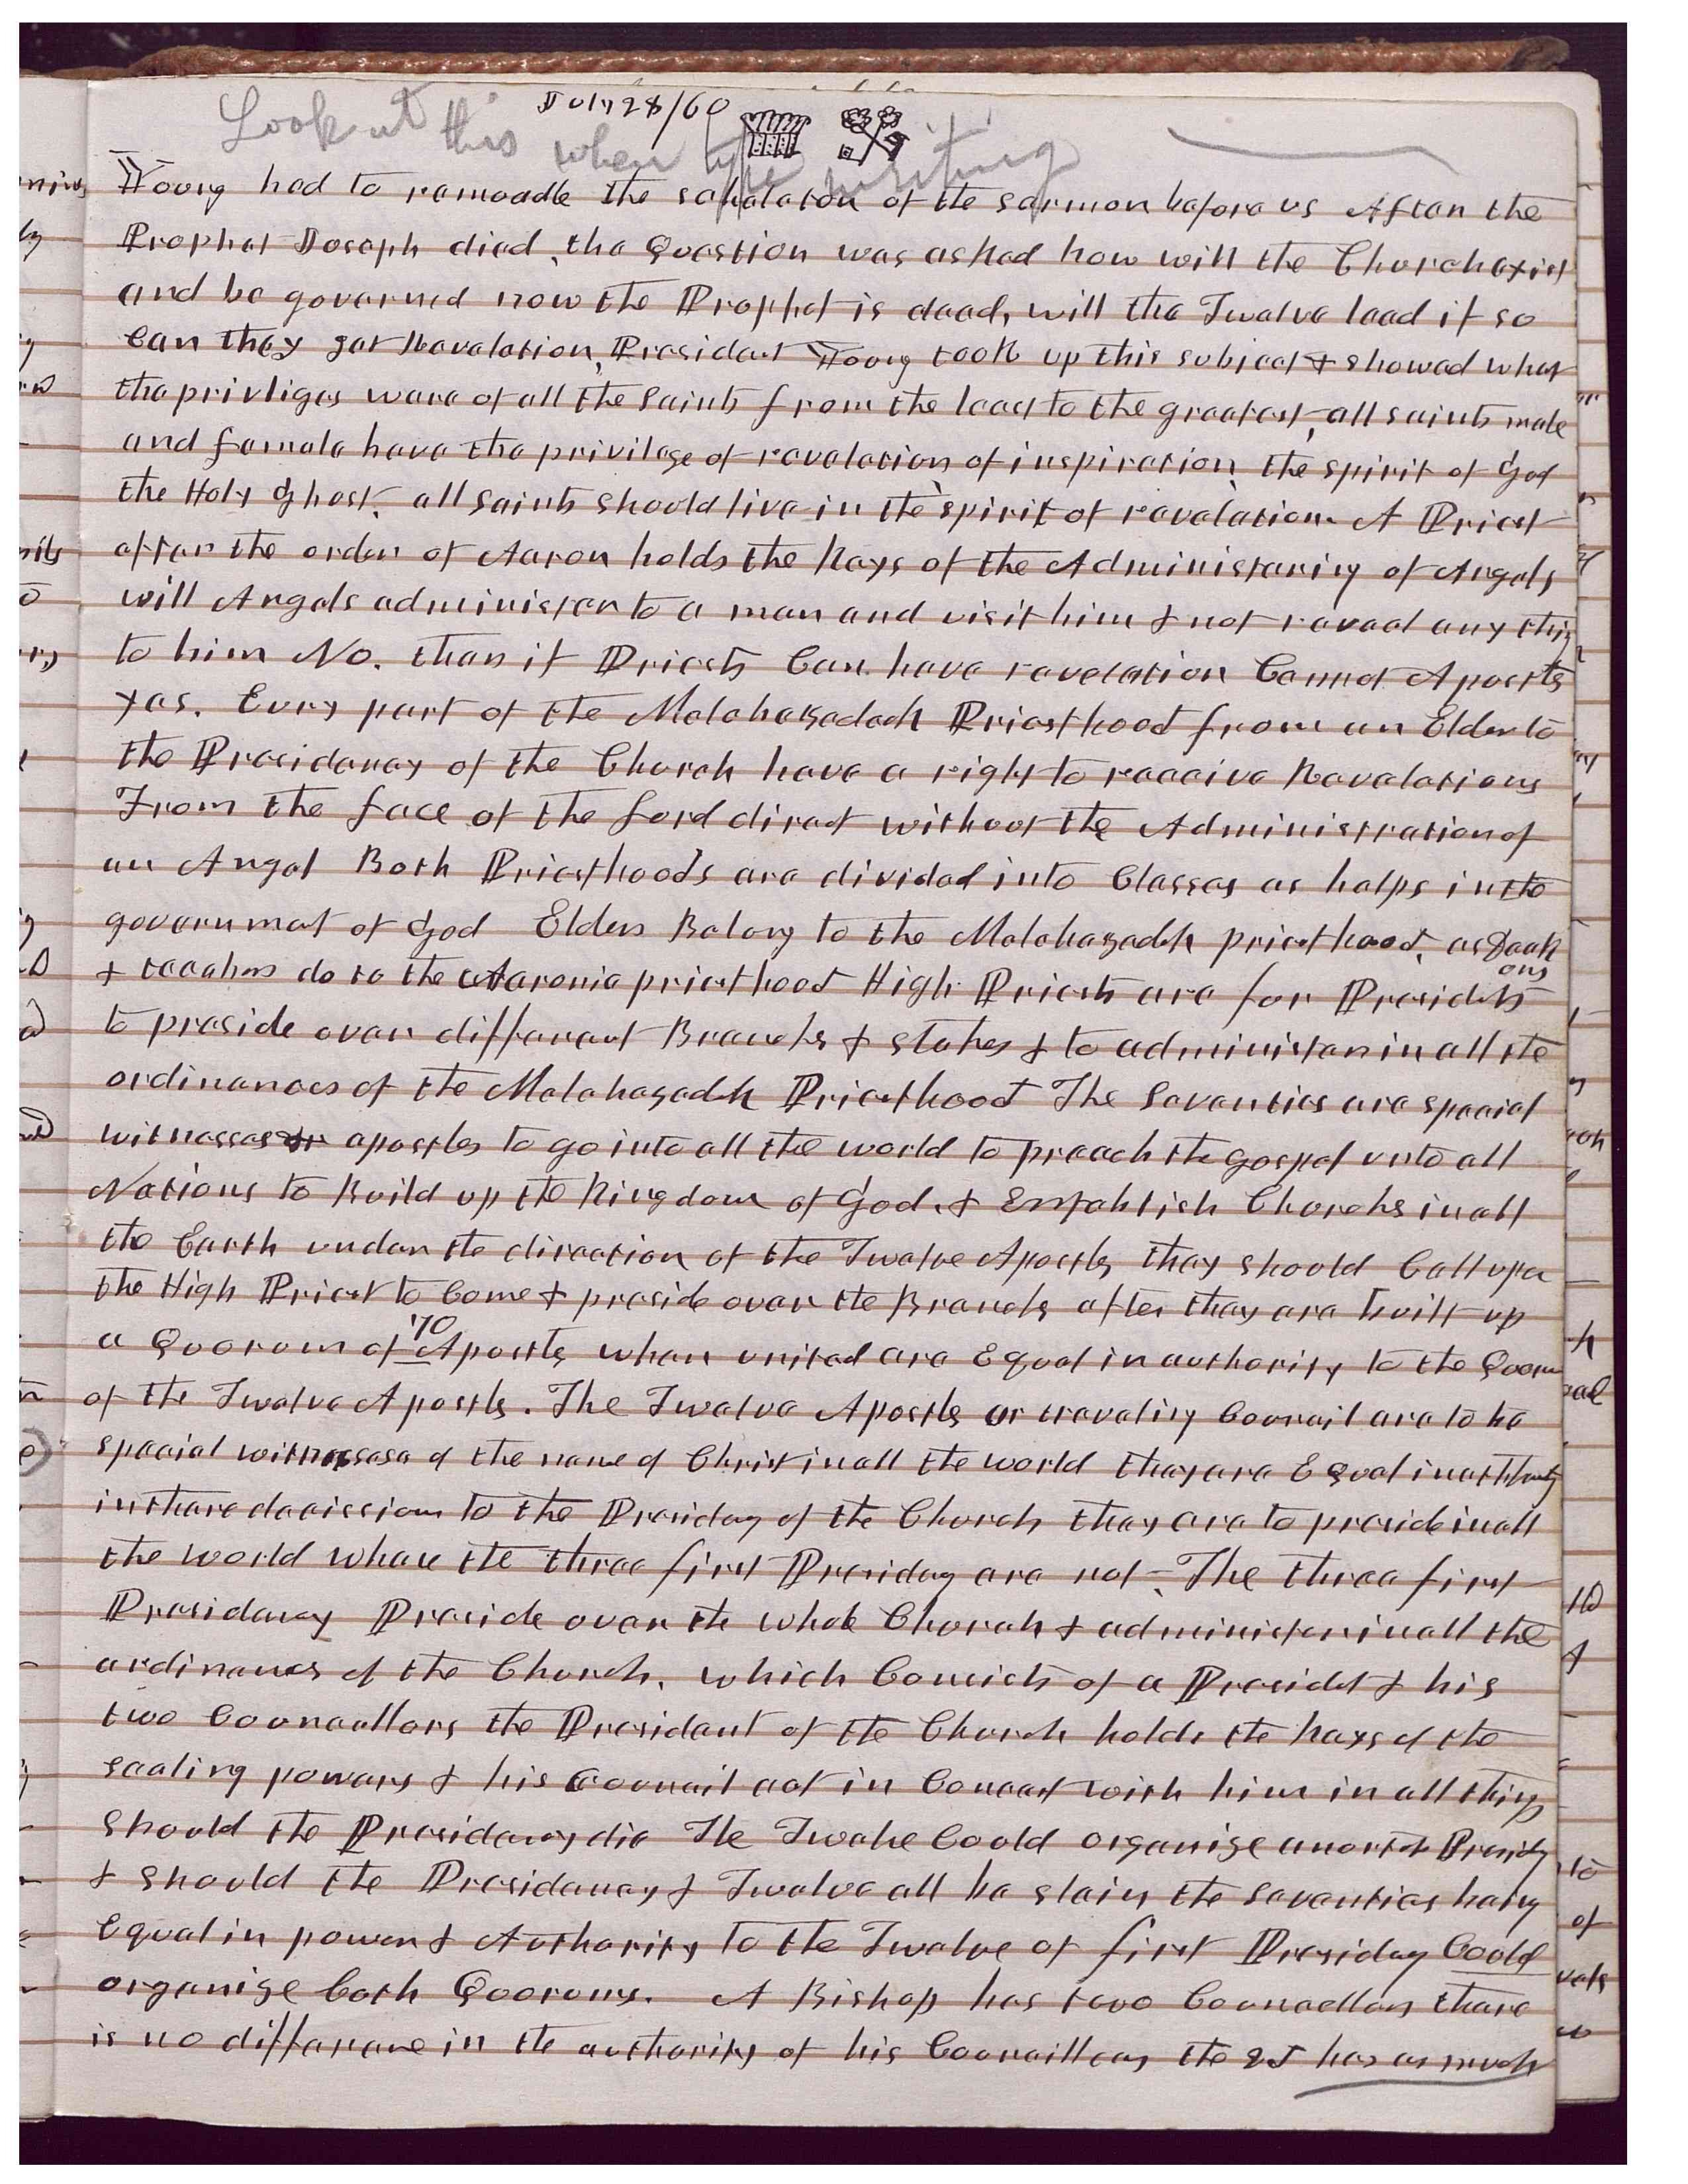 July 28/60
Look at this when type writing
Young had to remoddle the schalaton of the sermon before us After the
Prophet Joseph died, the Question was asked how will the Church exist
and be governed now the Prophet is dead, will the Twelve lead if so
Can they get Revelation, President Young took up this subject & showed what
the privliges ware of all the Saints from the least to the greatest, all saints male
and female have the privilege of revelation of inspiration, the spirit of God
the Holy Ghost, all Saints should live in the spirit of revelation. A Priest
after the order of Aaron holds the Keys of the Administering of Angels
will Angels administer to a man and visit him & not reveal any thing
to him No. then if Priests Can have revelation Cannot Apostls
yes. Evry part of the Melchezedeck Priesthood from an Elder to
the Presidency of the Church have a right to receive Revelations
From the face of the Lord direct without the Administration of
an Angel Both Priesthoods are divided into Classes as helps in the
governmet of God Elders Belong to the Melchezedek priesthood, as Deacons
& teachers do to the Aaronic priesthood High Priests are for Presidets
to preside over different Branchs & stakes & to administer in all the
ordinances of the Melchezedek Priesthood The Seventies are special
witnesses or apostles to go into all the world to preach the gospel unto all
Nations to Build up the Kingdom of God, & Establish Churchs in all
the Earth under the direction of the Twelve Apostls, they should Call upon
the High Priest to Come & preside over the Branchs after they are built up
a Quorum of 70 Apostls when united are Equal in authority to the Quorum
of the Twelve Apostls. The Twelve Apostls or traveling Council are to be
special witnesses of the name of Christ in all the world they are Equal in authority
in thare decissions to the Presidency of the Church they are to preside in all
the world whare the three first Presidency are not. The three first
Presidency Preside over the whole Church & administer in all the
ordinances of the Church, which Consists of a Presidet & his
two Councellors the President of the Church holds the keys of the
sealing powers & his Council act in Concert with him in all things
should the Presidency die The Twelve Could organize another Presidency
& should the Presidency & Twelve all be slain the Seventies being
Equal in power & Authority to the Twelve of first Presidency Could
organize both Quorums. A Bishop has two Councellors thare
is no differance in the authority of his Councillors the 2d has as much